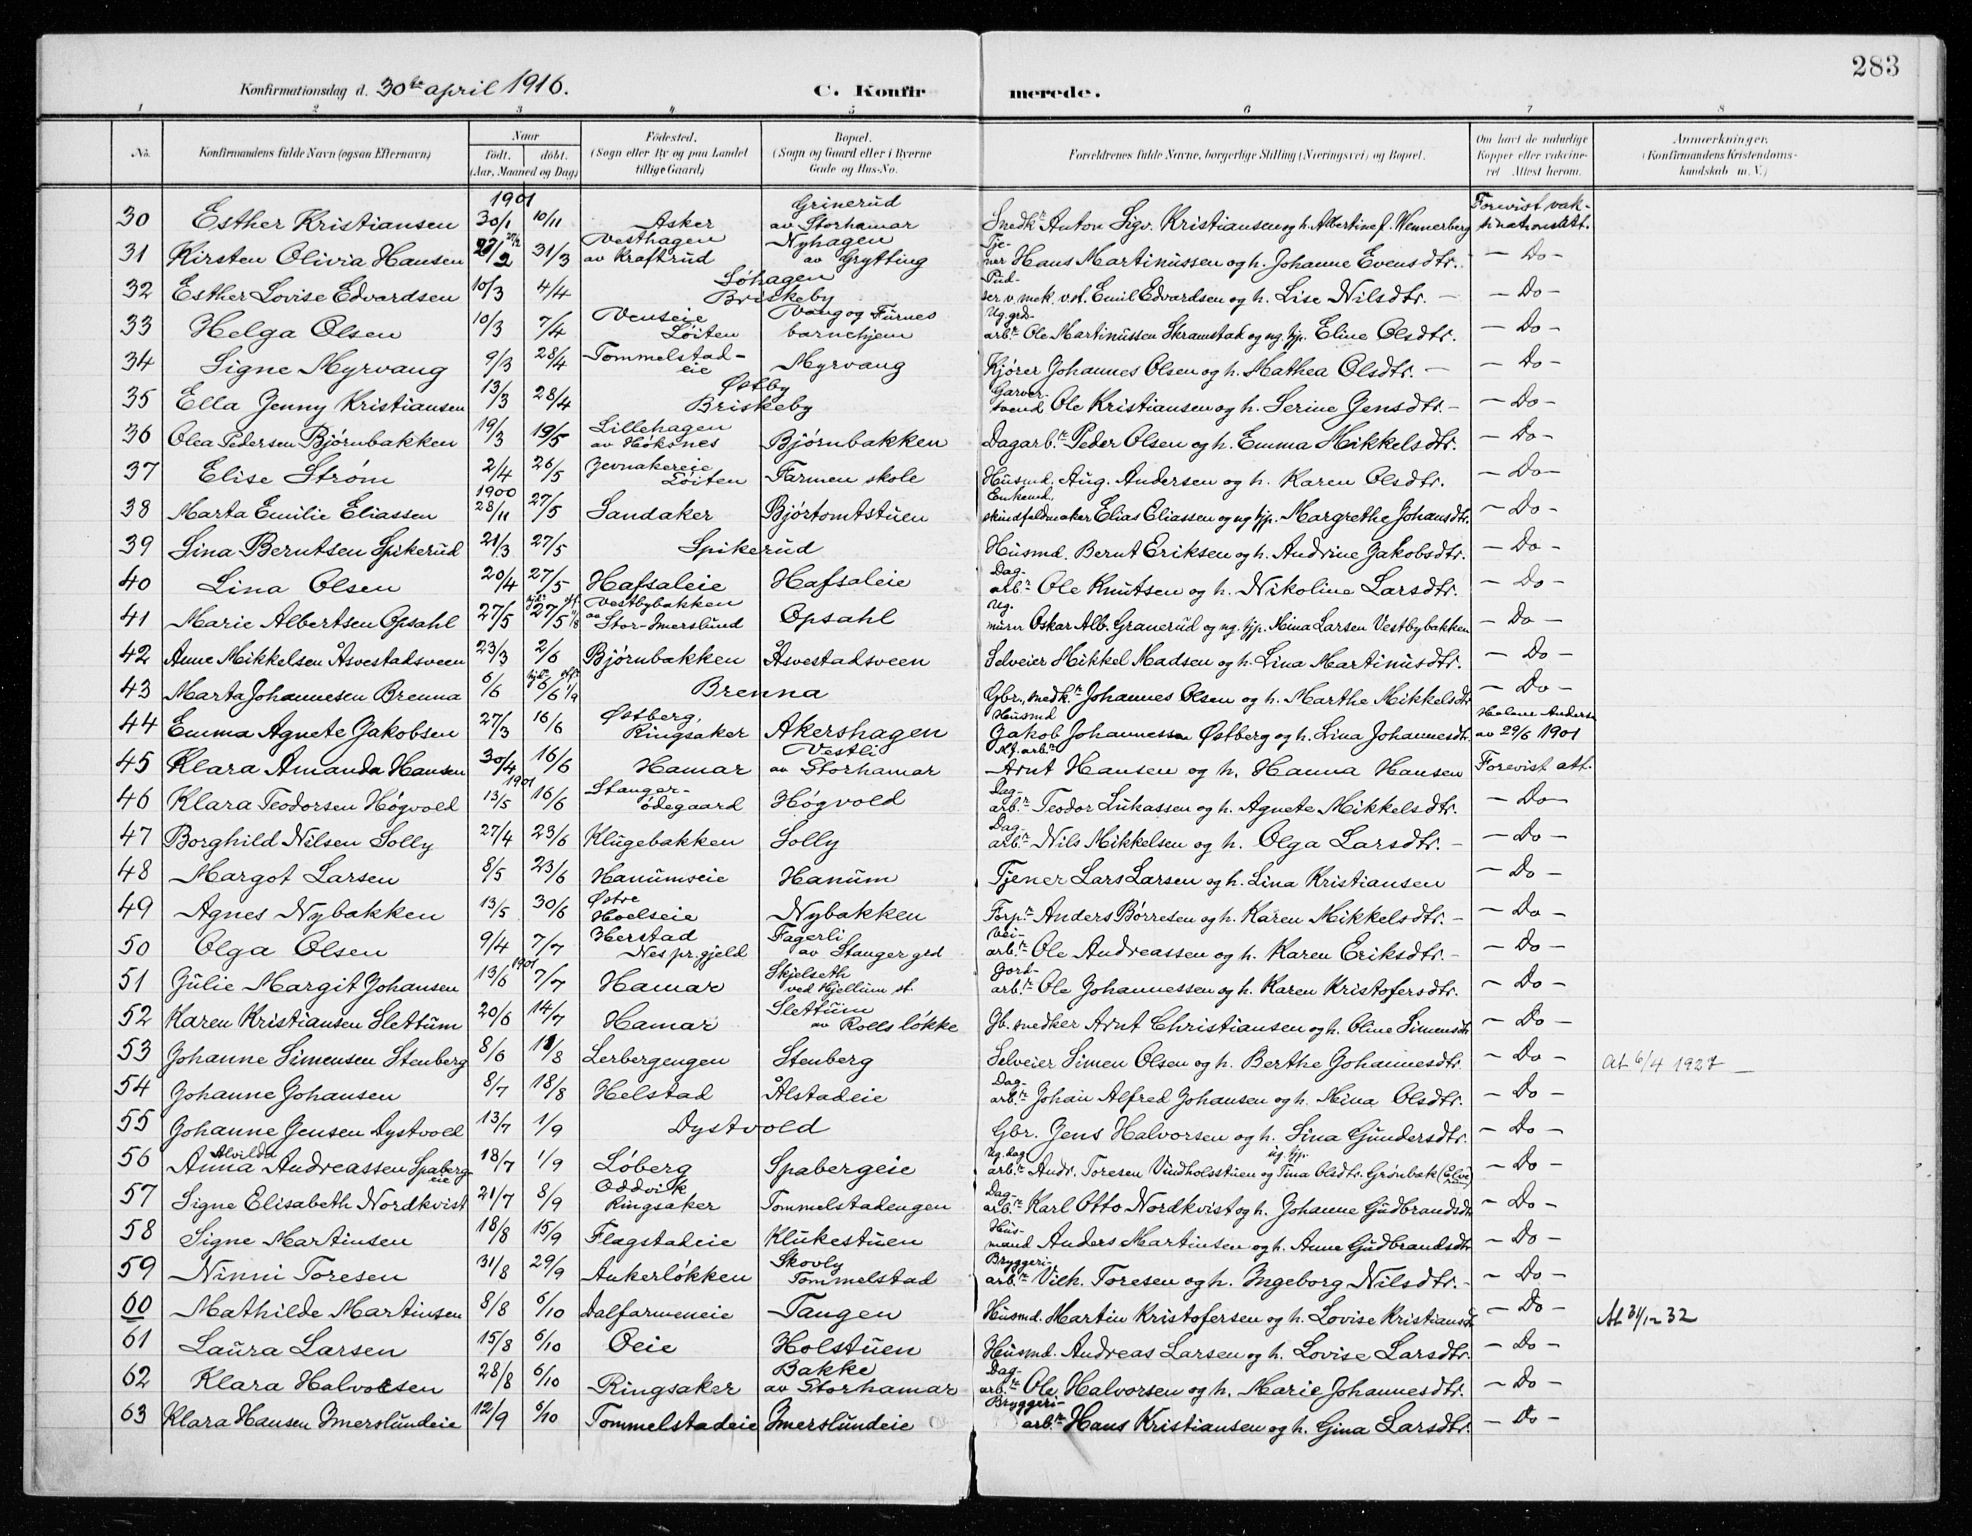 283
Konfirmationsdag d. 30te april 1916. C. Konfirmerede.
1 2 3 4 5 6 7 8
No. Konfirmandens fulde Navn (ogsaa Efternavn) Naar født. døbt. (Aar, Maaned og Dag) Fødested. (Sogn eller By og paa Landet tillige Gaard) Bopæl. (Sogn og Gaard eller i Byerne Gade og Hus-No. Forældrenes fulde Navne, borgerlige Stilling (Næringsvei) og Bopæl. Om havt de naturlige Kopper eller vakcineret Attest herom. Anmærkninger. (Konfirmandens Kristendomskundskab m. V.)
1901
30 Esther Kristiansen 30/1 10/11 Asker Grinerud av Storhamar Snedkr Anton Sigv. Kristiansen og h. Albertine f. Wennerberg Forevist vaksinationsatt.
31 Kirsten Olivia Hansen 31/3 Vesthagen av Kraftrud Nyhagen av Grytting Tjener Hans Martinussen og h. Johanne Evensdtr. — Do —
32 Esther Lovise Edvardsen 10/3 4/4 Søhagen Briskeby Pudser v. mek. v.st. Emil Edvardsen og h. Lise Nilsdtr. — — Do —
33 Helga Olsen 10/3 7/4 Venseie Løiten Vang og Furnes barnehjem Ug. grd. arbr Ole Martinussen Skramstad og ug. pp. Eline Olsdtr. — Do —
34 Signe Myrvang 9/3 28/4 Tommelstadeie Myrvang Kjører Johannes Olsen og h. Mathea Olsdtr. — — Do —
35 Ella Jenny Kristiansen 13/3 28/4 Østby Briskeby Garversvend Ole Kristiansen og h. Serine Jensdtr. — — Do —
36 Olea Pedersen Bjørnbakken 19/3 19/5 Lillehagen av Høksnes Bjørnbakken Dagarbr Peder Olsen og h. Emma Mikkelsdtr. — Do —
37 Elise Strøm 2/4 26/5 Jevnakereie Løiten Farmen skole Husmd. Aug. Andersen og h. Karen Olsdtr. — Do —
38 Marta Emilie Eliassen 1900 28/11 27/5 Sandaker Bjørtomtstuen Enkemd. skindfeldmaker Elias Eliassen og ug. pp. Margrethe Johansdtr. — Do —
39 Lina Berntsen Spikerud 21/3 27/5 Spikerud Husmd. Bernt Eriksen og h. Andrine Jakobsdtr. — Do —
40 Lina Olsen 20/4 27/5 Hafsaleie Hafsaleie Dagarbr Ole Knutsen og h. Nikoline Larsdtr. — Do —
41 Marie Albertsen Opsahl 27/5 27/5 Vestbybakken av Stor-Imerslund Opsahl Ug. murer Oskar Alb. Granerud og ug. pp. Mina Larsen Vestbybakken — Do —
42 Anne Mikkelsen Åsvestadsveen 23/3 2/6 Bjørnbakken Åsvestadsveen Selveier Mikkel Madsen og h. Lina Martinusdtr. — Do —
43 Marta Johannesen Brenna 6/6 6/6 1/9 Brenna Gbr., snedkr Johannes Olsen og h. Marthe Mikkelsdtr — Do —
44 Emma Agnete Jakobsen 27/3 16/6 Østberg, Ringsaker Akershagen Husmd Jakob Johannessen Østberg og h. Lina Johannesdtr. Halvor Anders av 29/6 1901
45 Klara Amanda Hansen 30/4 16/6 Hamar Vestli av Storhamar arbr Arnt Hansen og h. Hanna Hansen Forevist att.
46 Klara Teodorsen Høgvold 1901 13/5 16/6 Stangerødegaard Høgvold Dagarbr Teodor Lukassen og h. Agnete Mikkelsdtr. — Do —
47 Borghild Nilsen Solly 27/4 23/6 Klugebakken Solly Dagarbr Nils Mikkelsen og h. Olga Larsdtr. — — Do —
48 Margot Larsen 8/5 23/6 Hanumseie Hanum Tjener Lars Larsen og h. Lina Kristiansen — Do —
49 Agnes Nybakken 13/5 30/6 Østre Hoelseie Nybakken Forpr Anders Børresen og h. Karen Mikkelsdtr. — — Do —
50 Olga Olsen 9/4 7/7 Herstad Nes pr.gjeld Fagerli av Stanger grd Veiarbr Ole Andreassen og h. Karen Eriksdtr. — — Do —
51 Julie Margit Johansen 13/6 1901 7/7 Hamar Skjelseth ved Hjellum st. Jordarbr Ole Johannessen og h. Karen Kristofersdtr. — Do —
52 Karen Kristiansen Slettum 20/6 14/7 Hamar Slettum av Rolls løkke Gb. snedker Arnt Christiansen og h. Oline Simensdtr — Do —
53 Johanne Simensen Stenberg 8/6 /8 Lerbergengen Stenberg Selveier Simen Olsen og h. Berthe Johannesdtr. — Do — At 6/4 1927 —
54 Johanne Johansen 8/7 18/8 Helstad Ålstadeie Dagarbr Johan Alfred Johansen og h. Mina Olsdtr. — Do —
55 Johanne Jensen Dystvold 13/7 1/9 Dystvold Gbr. Jens Halvorsen og h. Lina Gundersdtr. — Do —
56 Anna Alvilda Andreassen Spabergeie 18/7 1/9 Løberg Spabergeie Ug. dagarbr Andr. Toresen Vindholsstuen og ug. pp. Tina Olsdtr. Grønbak — Do —
57 Signe Elisabeth Nordkvist 21/7 8/9 Oddvik Ringsaker Tommelstadengen Dagarbr Karl Otto Nordkvist og h. Johanne Gudbrandsdtr — Do —
58 Signe Martinsen 18/8 15/9 Flagstadeie Klukestuen Husmand Anders Martinsen og h. Anne Gudbrandsdtr — Do —
59 Ninni Toresen 31/8 29/9 Ankerløkken Skovly Tommelstad Bryggeriarbr Vilh. Toresen og h. Ingeborg Nilsdtr. — — Do —
60 Mathilde Martinsen 8/8 6/10 Dalfarmeneie Tangen Husmd. Martin Kristofersen og h. Lovise Kristiansdtr — Do — At 31/12 32
61 Laura Larsen 15/8 6/10 Oeie Holstuen Husmd. Andreas Larsen og h. Lovise Larsdtr. — Do —
62 Klara Halvorsen 28/8 6/10 Ringsaker Bakke av Storhamar Dagarbr Ole Halvorsen og h. Marie Johannesdtr. — Do —
63 Klara Hansen Imerslundeie 12/9 6/10 Tommelstadeie Imerslundeie Bryggeriarbr Hans Kristiansen og h. Gina Larsdtr. — Do —